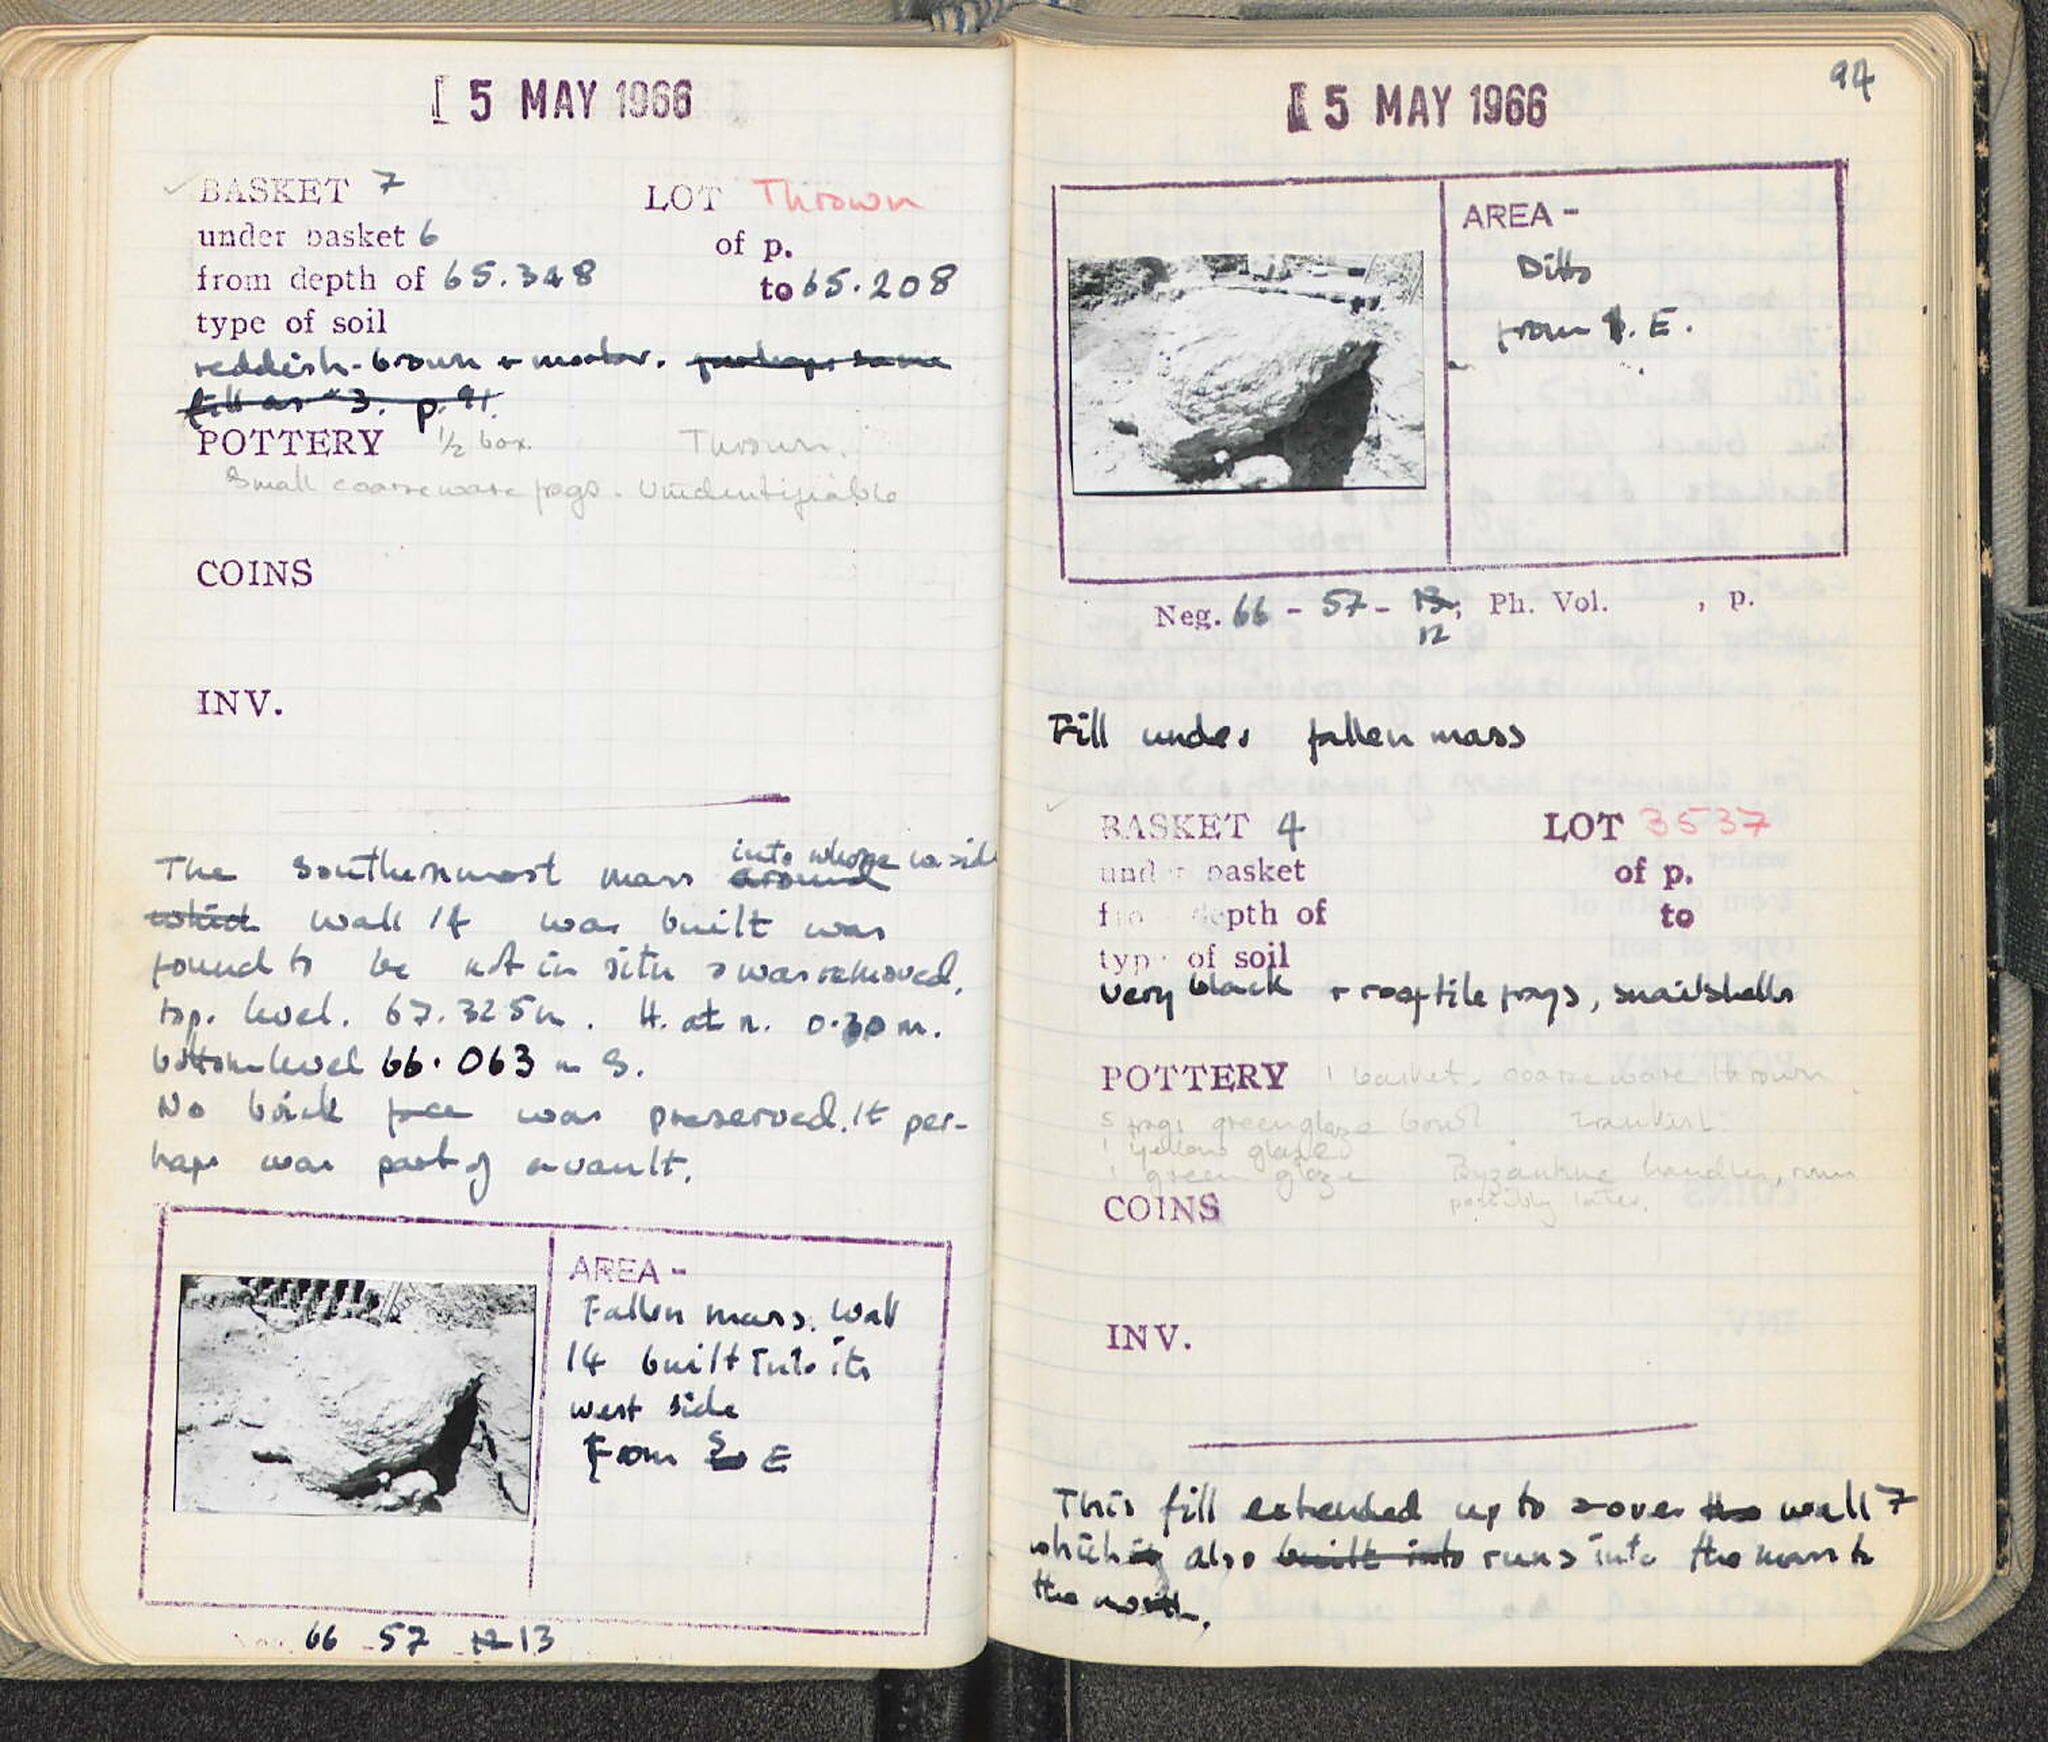 5 MAY 1966
BASKET 7 LOT Thrown
under basket 6 of p.
from depth of 65.348 to 65.208
type of soil
reddish-brown + mortar. perhaps same
fill as #3. p. 91.
POTTERY 1/2 box. Thrown.
Small coarse ware frags. Unidentifiable
COINS
INV.
into whose w. side
The southernmost mass around
which wall 14 was built was
found to be not in situ & was removed.
top. level. 67.325m. H. at n. 0.30 m.
bottom level 66.063 m S.
No brick face was preserved. It per-
haps was part of a vault.
AREA -
Fallen mass. Wall
14 built into its
west side
From S E
66 - 57 12 13
94
5 MAY 1966
AREA -
Ditto
from E.
Neg. 66 - 57 - 13; Ph. Vol. , p.
12
Fill under fallen mass
BASKET 4 LOT 3537
under basket of p.
from depth of to
type of soil
very black + rooftile frags, snailshells
POTTERY 1 basket. coarse ware thrown.
5 frags green glaze bowl Turkish.
1 yellow glaze
1 green glaze Byzantine handles, rims
possibly later.
COINS
INV.
This fill extended up to & over the wall 7
which is also built into runs into the mass to
the north.